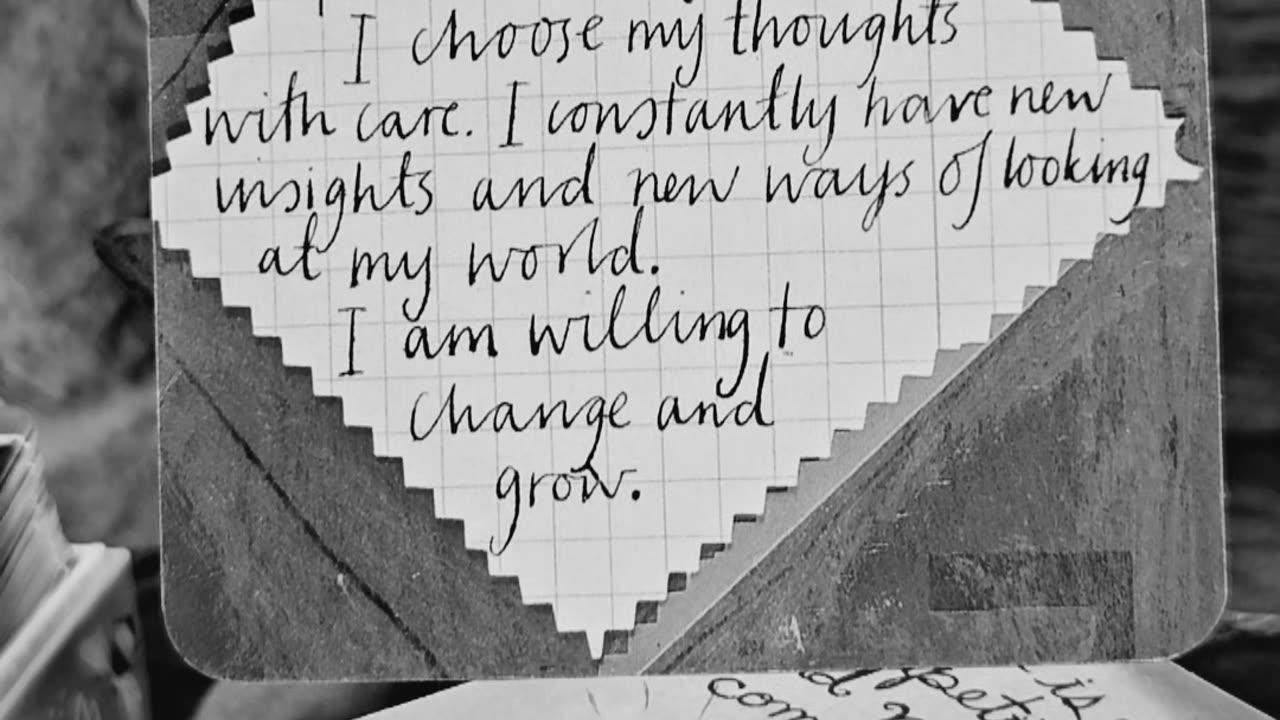 I choose my thoughts
with care. I constantly have new
insights and new ways of looking
at my world.
I am willing to
change and
grow.
is